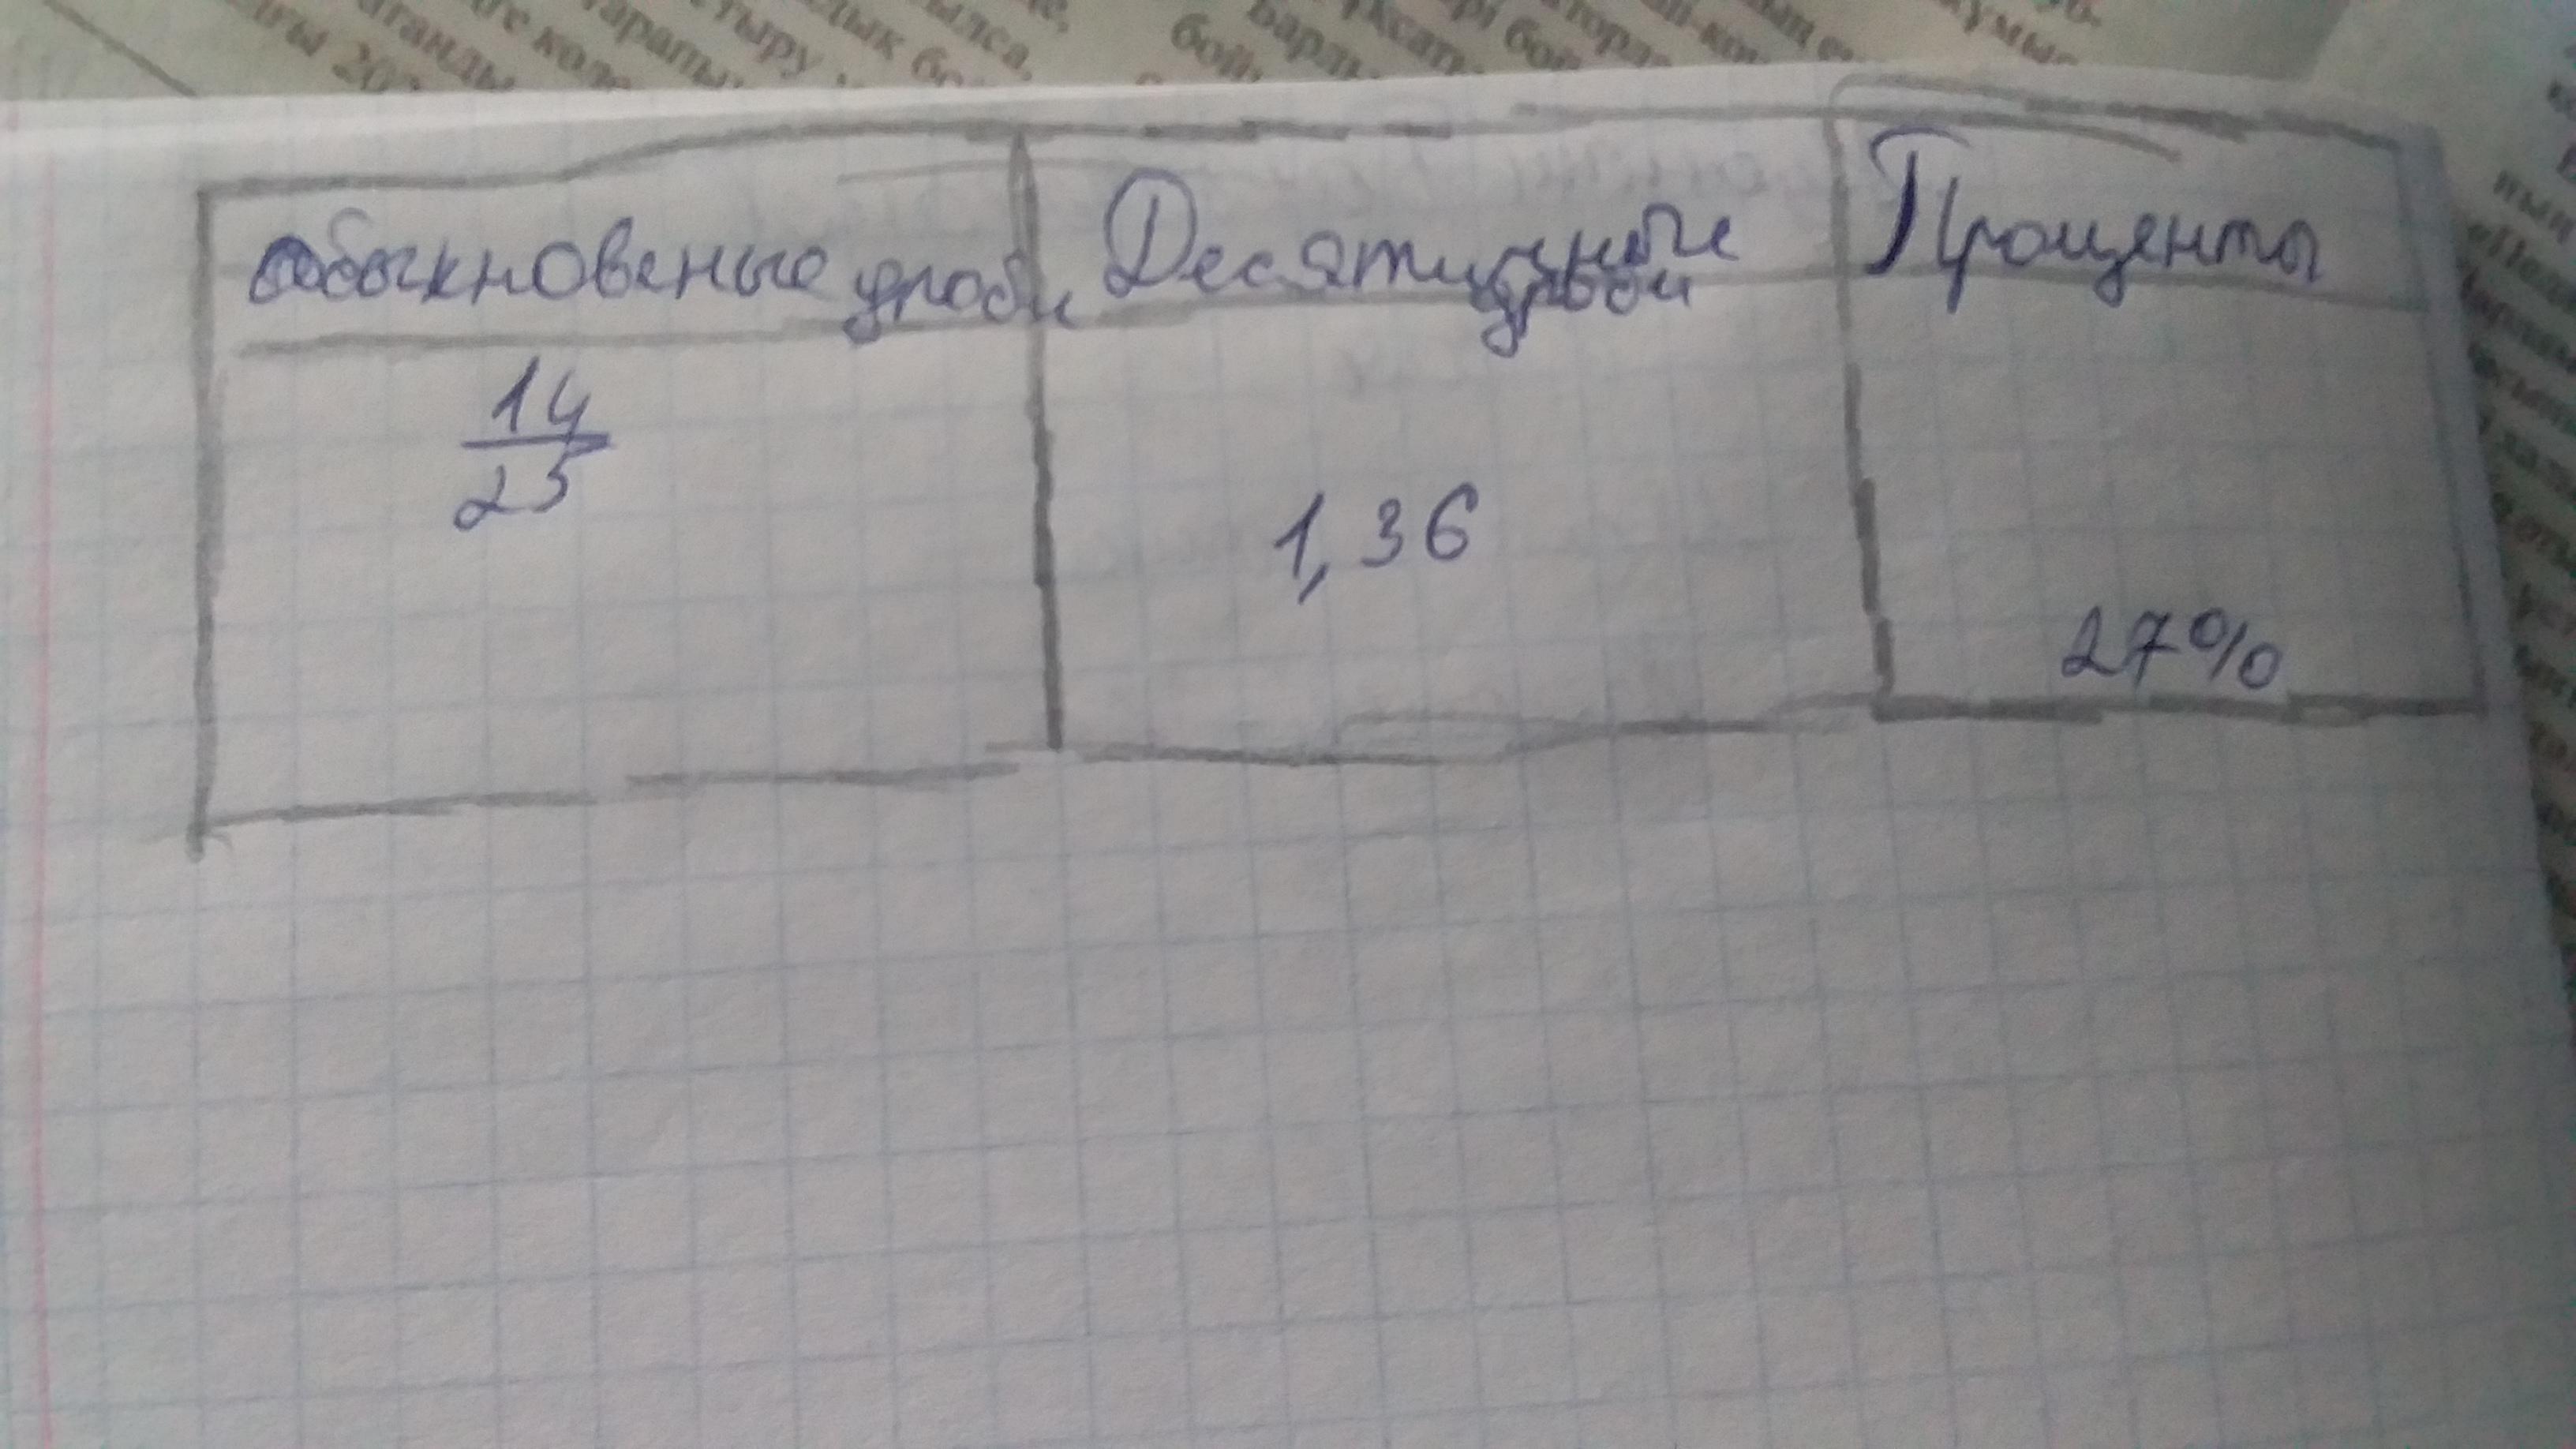 обыкновеные дроби Десятичные дроби Проценты
14
25
1,36
27%